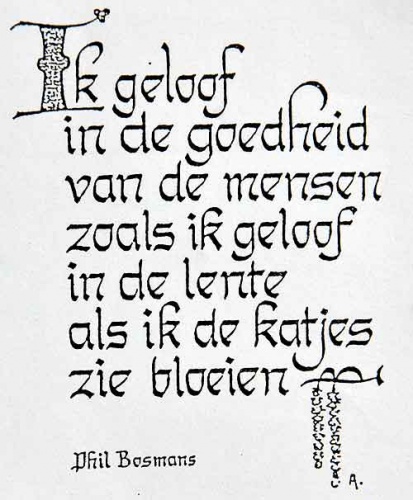 Ik geloof
in de goedheid
van de mensen
zoals ik geloof
in de lente
als ik de katjes
zie bloeien
Phil Bosmans
A.